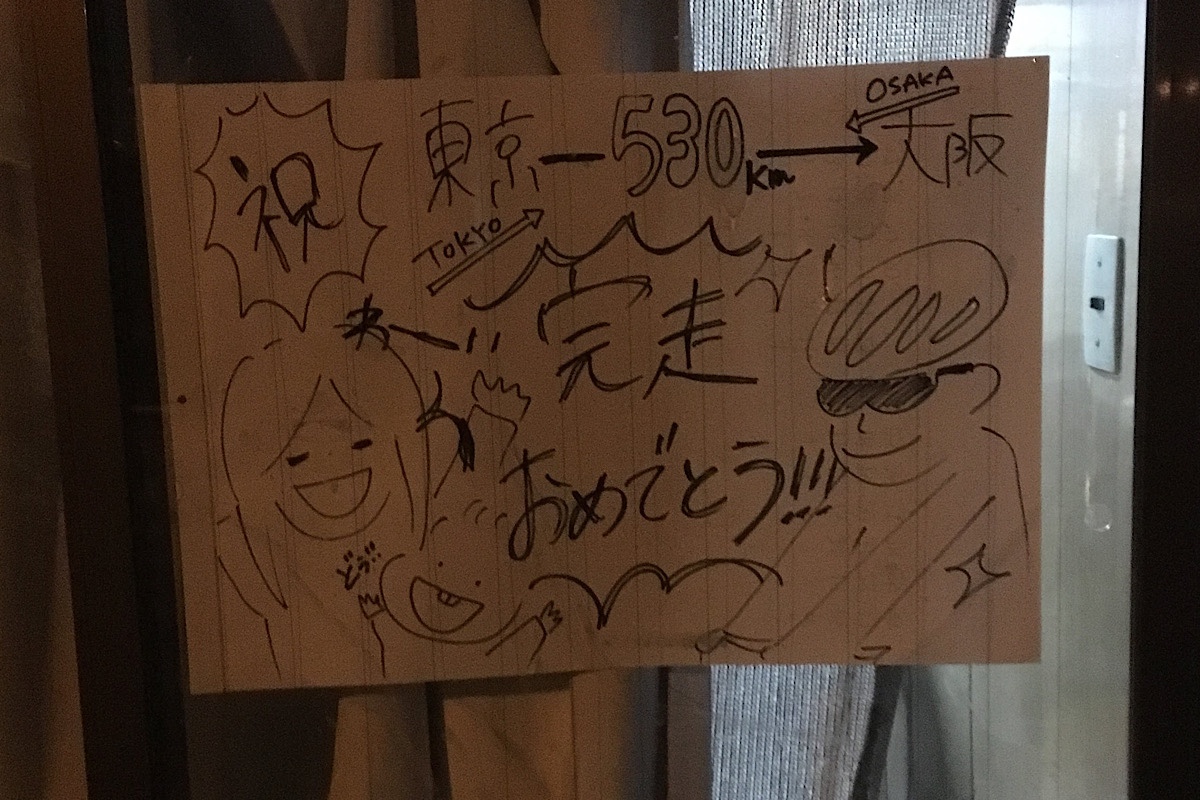 祝
東京ー530km→大阪
OSAKA
TOKYO
完走
おめでとう!!!